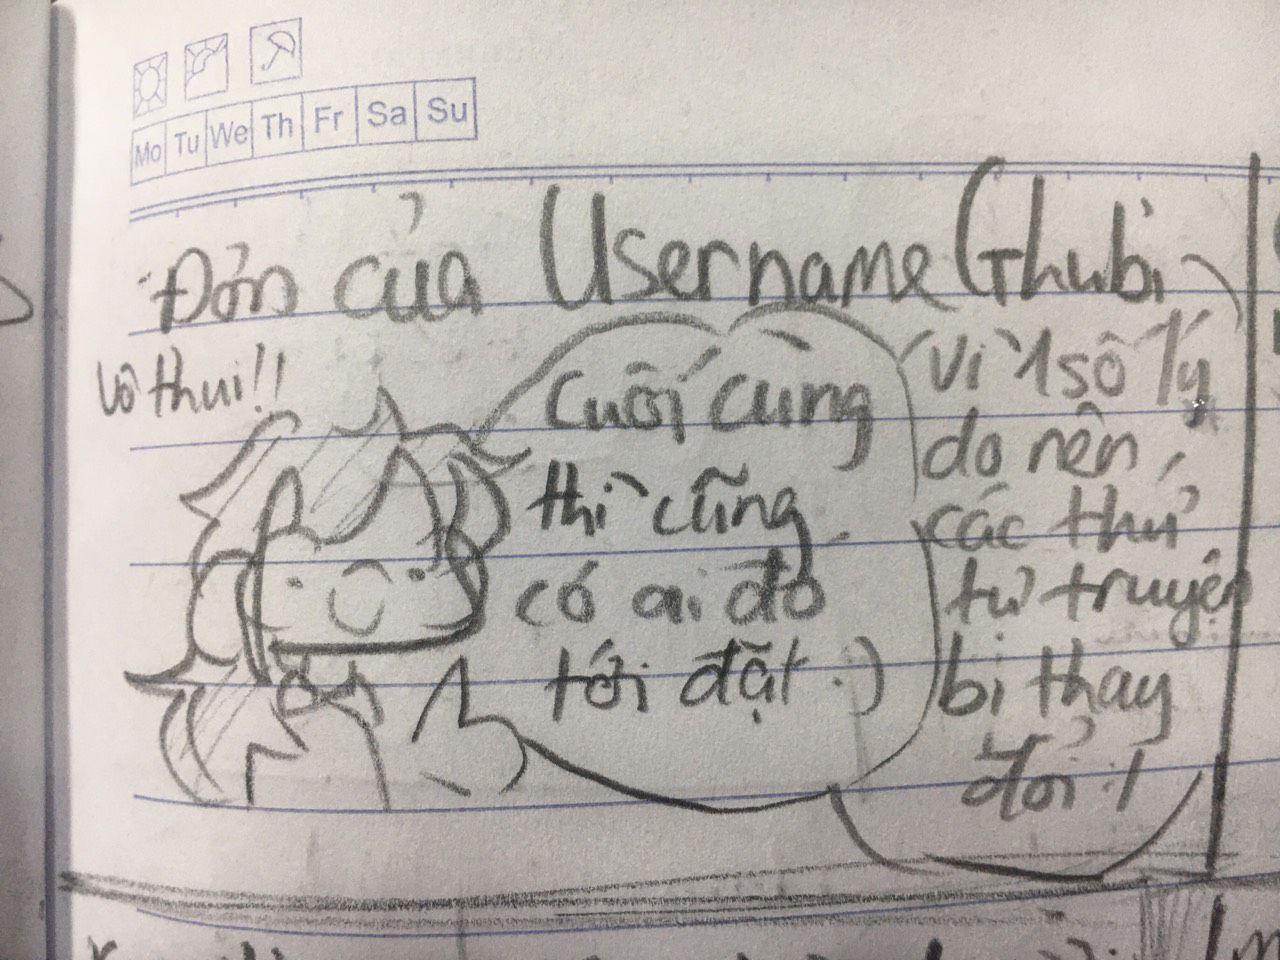 Mo Tu We Th Fr Sa Su
Đơn của Username Ghubi
Vô thui!!
Cuối cùng
thì cũng
có ai đó
tới đặt :)
Vì 1 số lý
do nên
các thứ
tự truyện
bị thay
đổi :/